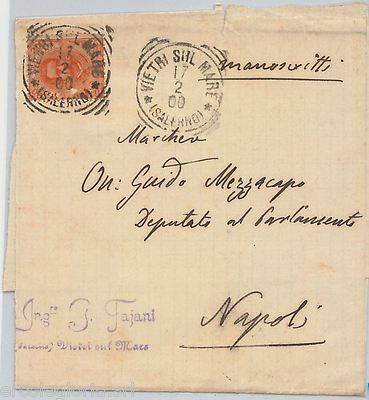 VIETRI SUL MARE
17
2
00
★ (SALERNO) ★
VIETRI SUL MARE
17
2
00
★ (SALERNO) ★
manoscritti
Marchese
On: Guido Mezzacapo
Deputato al Parlamento
Napoli
Ing.re Fajani
(Salerno) Vietri sul Mare